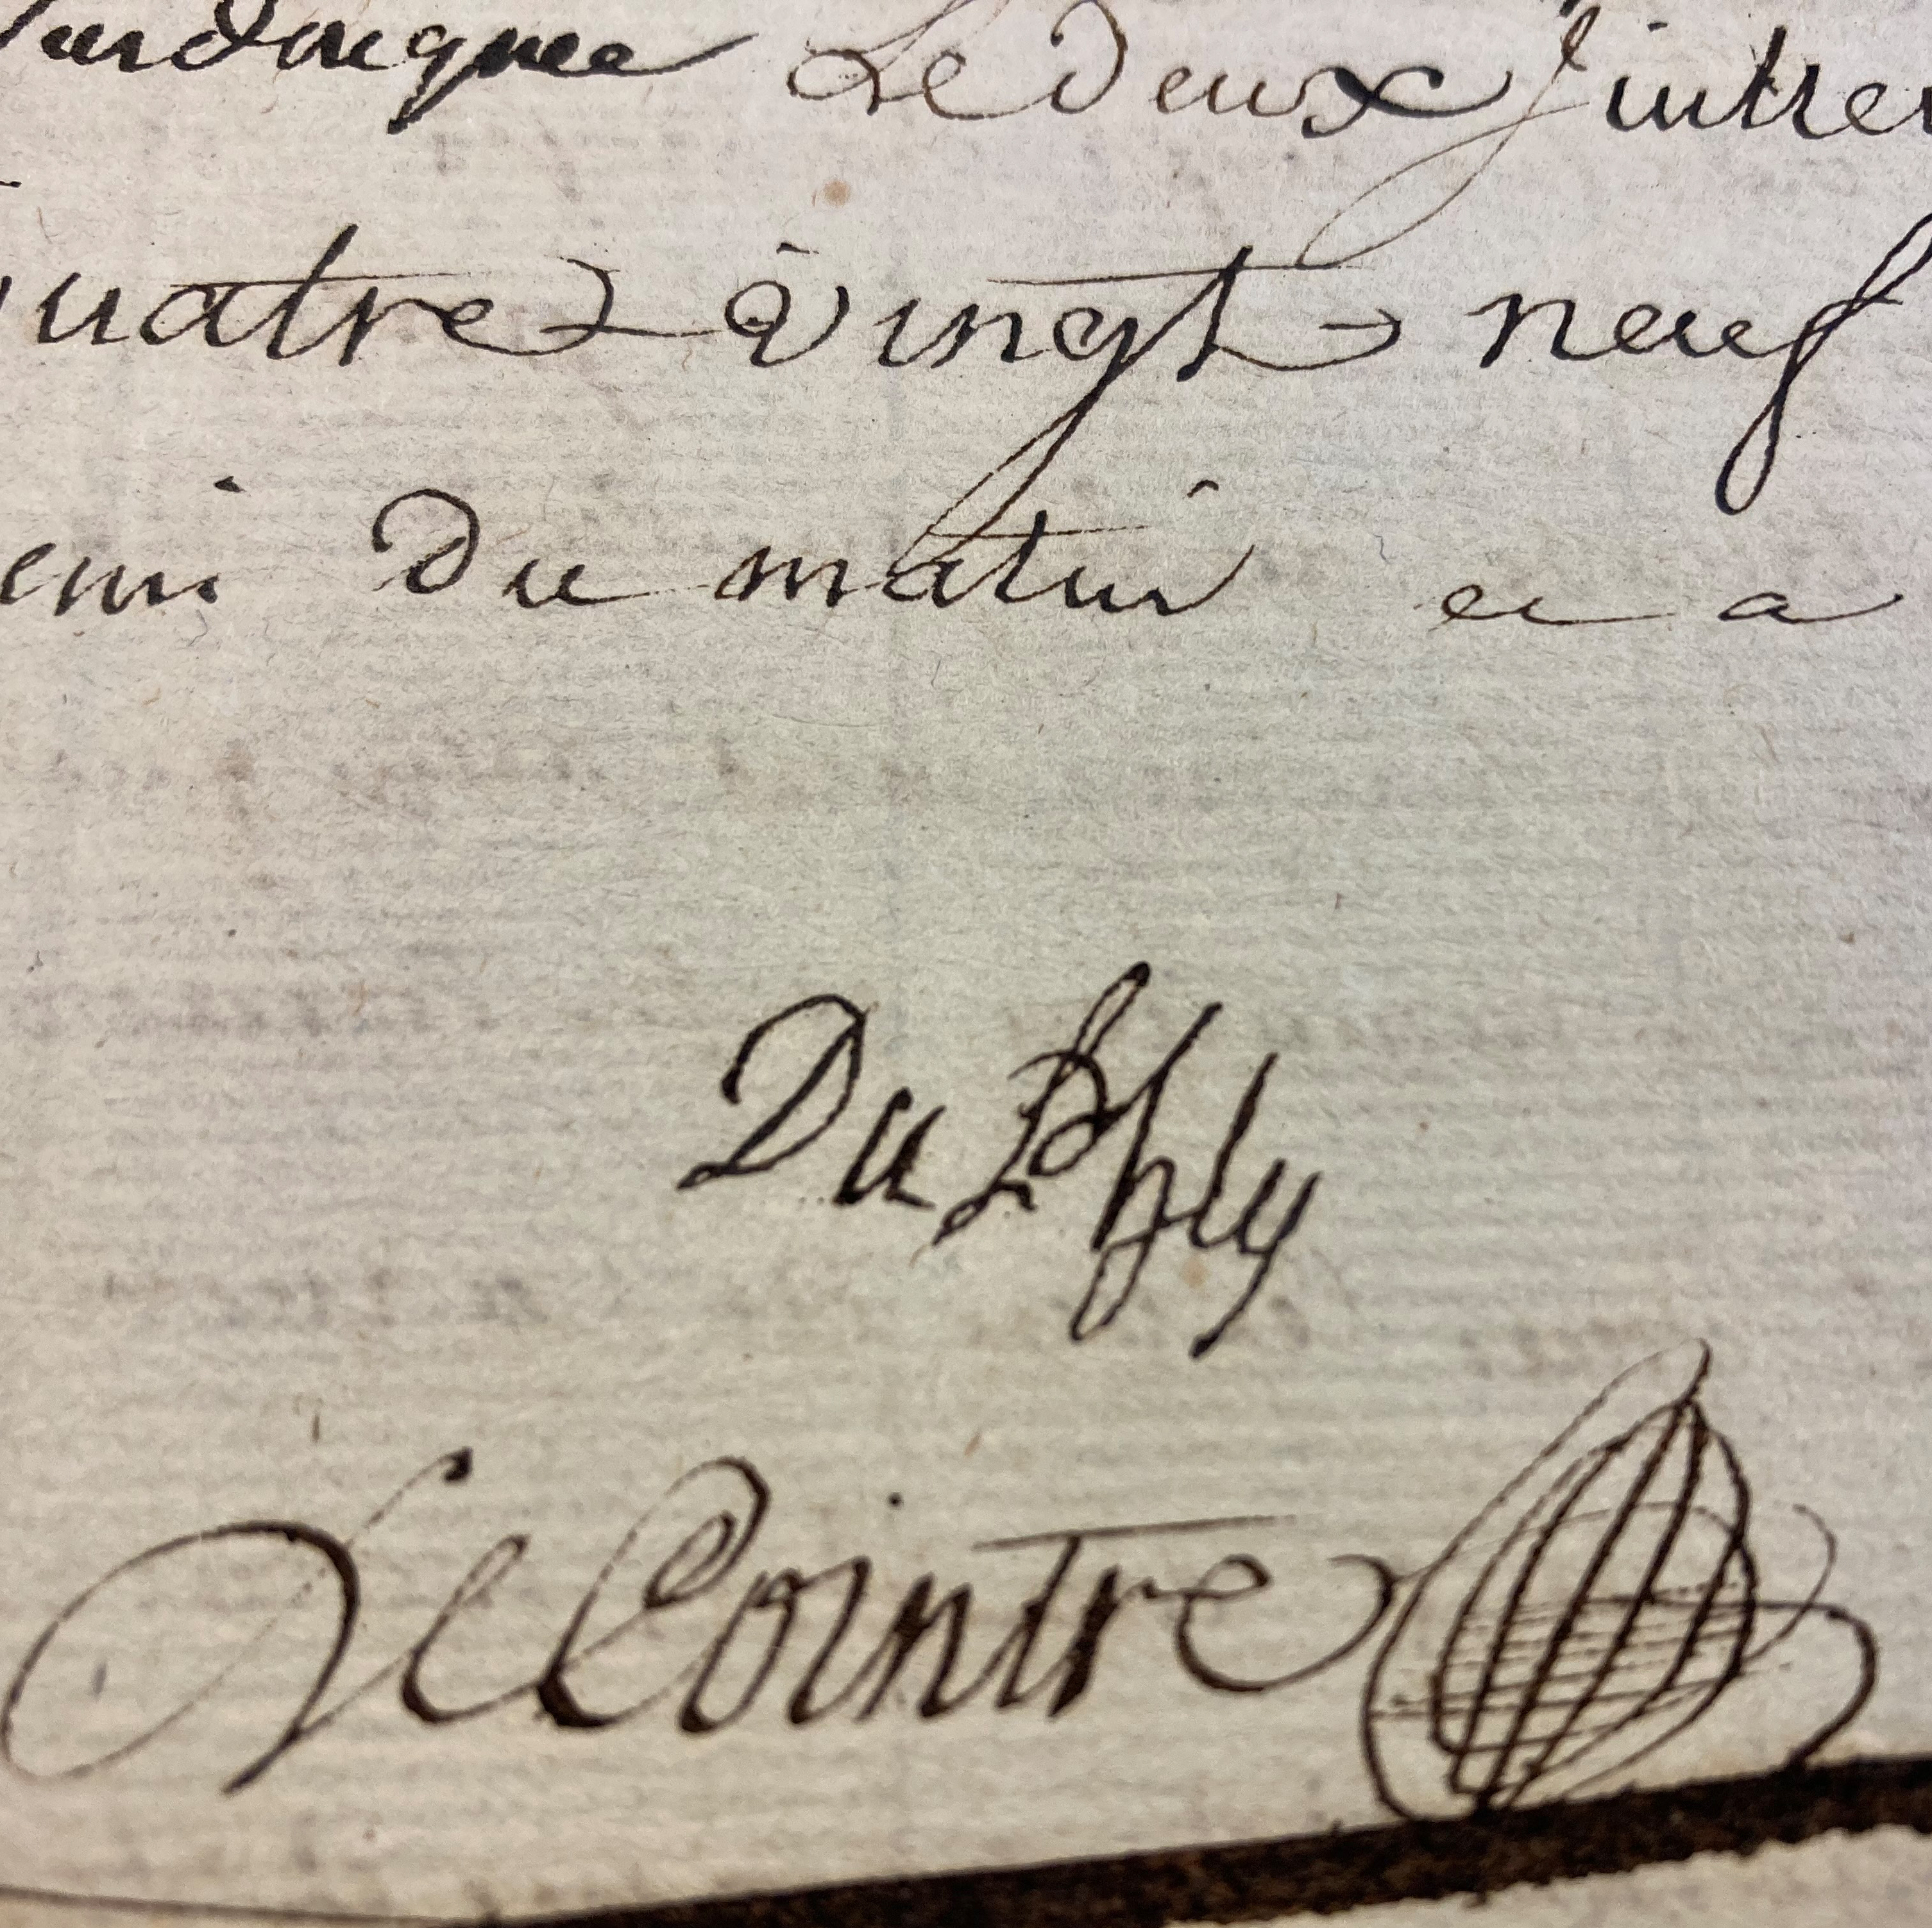 susdesignee Le deux Juillet
quatre vingt neuf
emi du matin et a
Du Phly
LeCointre